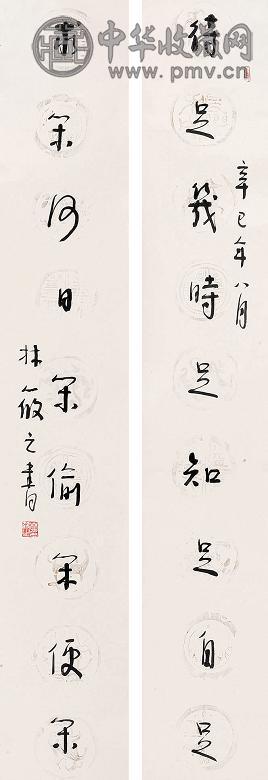 中华收藏网
www.pmv.cn
待足幾時足知足自足
辛巳年八月
閑何日閑偷閑便閑
林筱之書